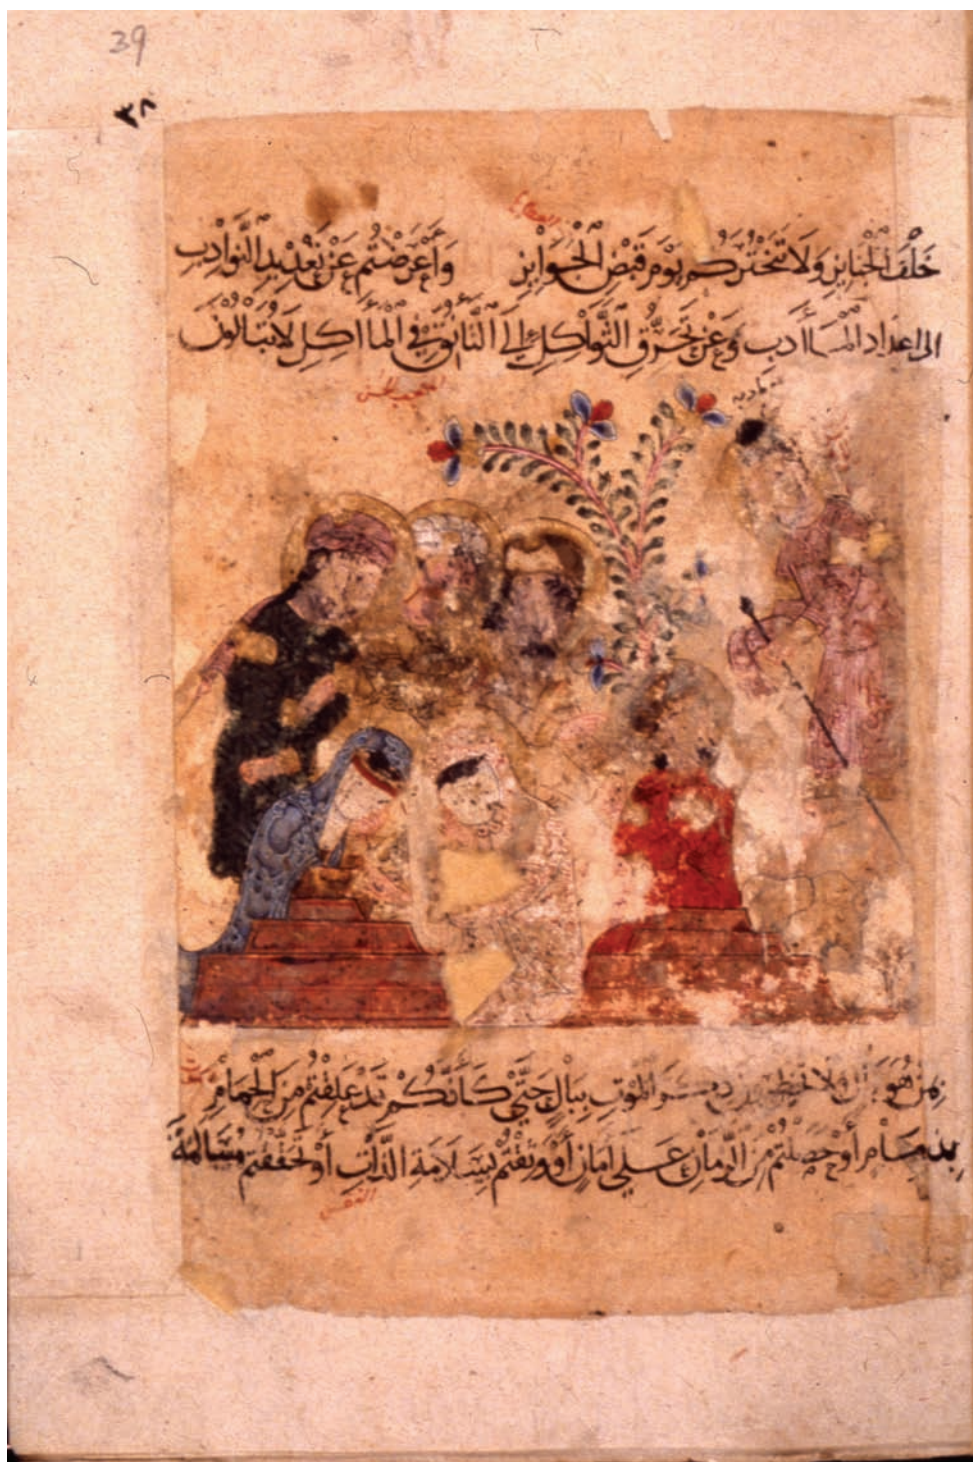 39
٣٨
خَلْفَ الْجَنَايِزِ وَلَا تَبَخْتُرَكُمْ يَوْمَ قَبْضِ الْجَوَايِزِ وَأَعْرَضْتُمْ عَنْ تَعْدِيدِ النَّوَادِبِ
الى اعداد المَآدب وَعَنْ تَحَرُّقِ الثَّوَاكِلِ إِلَى التَّأَنُّقِ فِي الْمَآكِلِ لَا تُبَالُونَ
بِمَنْ هُوَ وَلَا ذِكْرَ الْمَوْتِ بِبَالٍ حَتَّى كَأَنَّكُمْ قَدْ عَلِقْتُمْ مِنَ الْحِمَامِ
بِذِمَامٍ أَوْ حَصَلْتُمْ مِنَ الزَّمَانِ عَلَى أَمَانٍ أَوْ وَثِقْتُمْ بِسَلَامَةِ الذَّاتِ أَوْ تَحَقَّقْتُمْ مُسَالَمَةَ